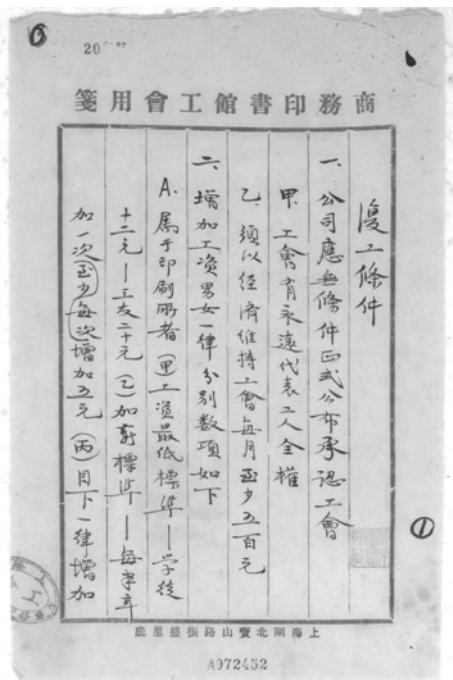 20
商務印書館工會用箋
復工條件
一、公司應無條件正式公布承認工會
甲、工會有永遠代表工人全權
乙、須以經濟維持工會每月至少五百元
二、增加工資男女一律分別數項如下
A.屬于印刷所者(甲)工資最低標準—学徒
十二元—工友二十元(乙)加薪標準—每年
加一次至少每次增加五元(丙)目下一律增加
①
上海閘北寶山路振盛里底
A072452